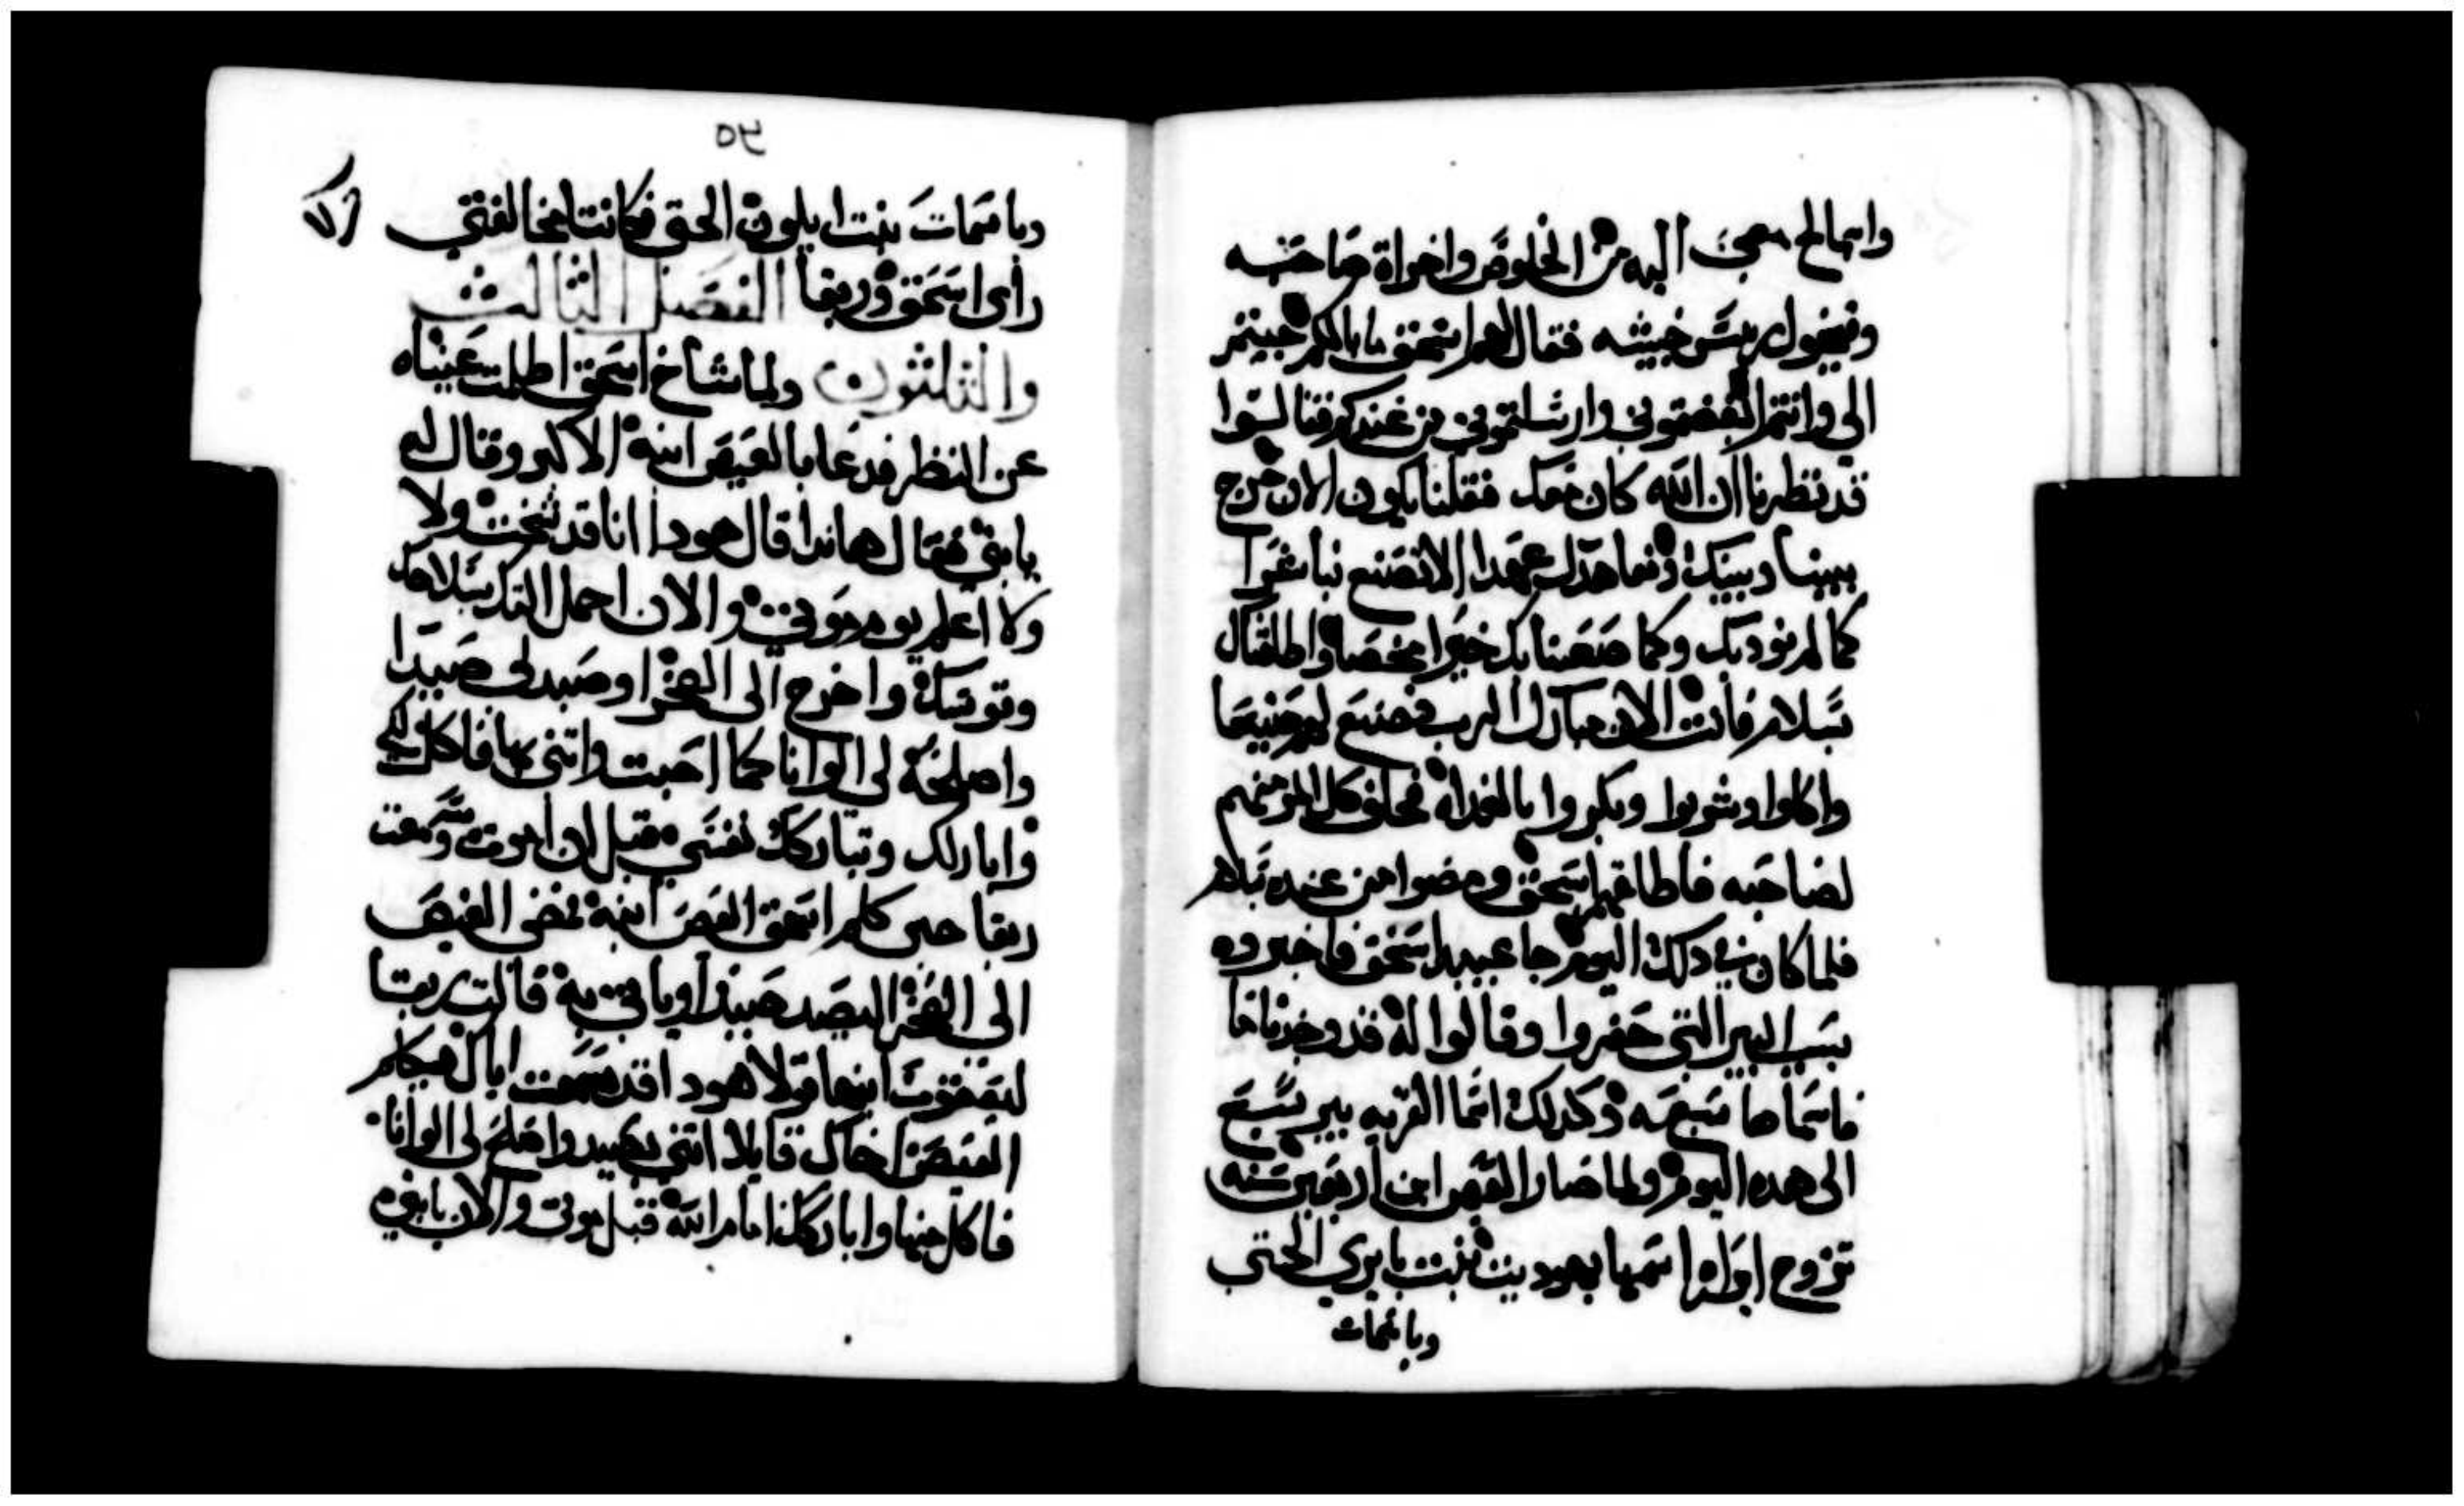 وابيمالخ معجى اليه من الخلوص واخوزاة صاحبه
وفيخول ريس خبيشه فقال لهم اسحق ما بالكم جيتم
الي وانتم ابغضتموني وارسلتموني من عندكم فقالوا
قد نظرنا ان الله كان معك فقلنا يكون الان حرج
بيننا وبينك ونعاهدك عهدا الا تصنع بنا شرا
كما لم نوديك وكما صنعنا بك خيرا محضا واطلقناك
بسلام فانت الان مبارك الرب فصنع لهم
واكلوا وشربوا وبكروا بالغداه فحلف كل امر منهم
لصاحبه فاطلقهم اسحق ومضوا من عنده بسلام
فلما كان في دلك اليوم جا عبيد اسحق فاخبروه
بسبب البير التي حفروا وقالوا له قد وجدنا ما
فاسماها سبعه وكدلك اسما القريه بير سبع
الى هده اليوم ولما صار العيص ابن اربعين سنه
تزوج امراه اسمها يهوديت بنت بايري الحتى
وباسمات
٥٤
وباسمات بنت ايلون الحتى فكانتا مخالفتي
راى اسحق وريقا الفصل الثالث
والثلثون ولما شاخ اسحق اظلمت عيناه
عن النظر فدعا بالعيص ابنه الاكبر وقال له
يا بني فقال هاندا قال هودا انا قد شخت ولا
ولا اعلم يوم موتي والان احمل اليك سلاحك
وقوسك واخرج الى الصحرا وصيد لي صيدا
واصلحه لي الوانا كما احبت واتني بها فاكل لكي
وابارك وتباركك نفسي قبل ان اموت وسمعت
ريقا حين كلم اسحق العيص ابنه فمضى العيص
الى الصحرا ليصيد صيدا وياتي به قالت ريقا
ليعقوب ابنها قولا هودا قد سمعت اباك يكلم
العيص اخاك قايلا اتني بصيد واصلح لي الوانا
فاكل منها واباركك امام الله قبل موتي والان يابني